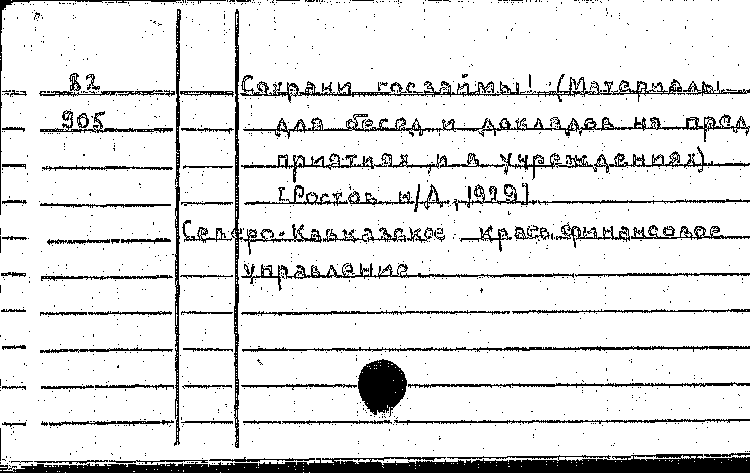 В2 Сохрани госзаймы! (Материалы
905 для бесед и докладов на пред
приятиях и в учреждениях)
[Ростов н/Д, 1929]
Северо-Кавказское краев. финансовое
управление.